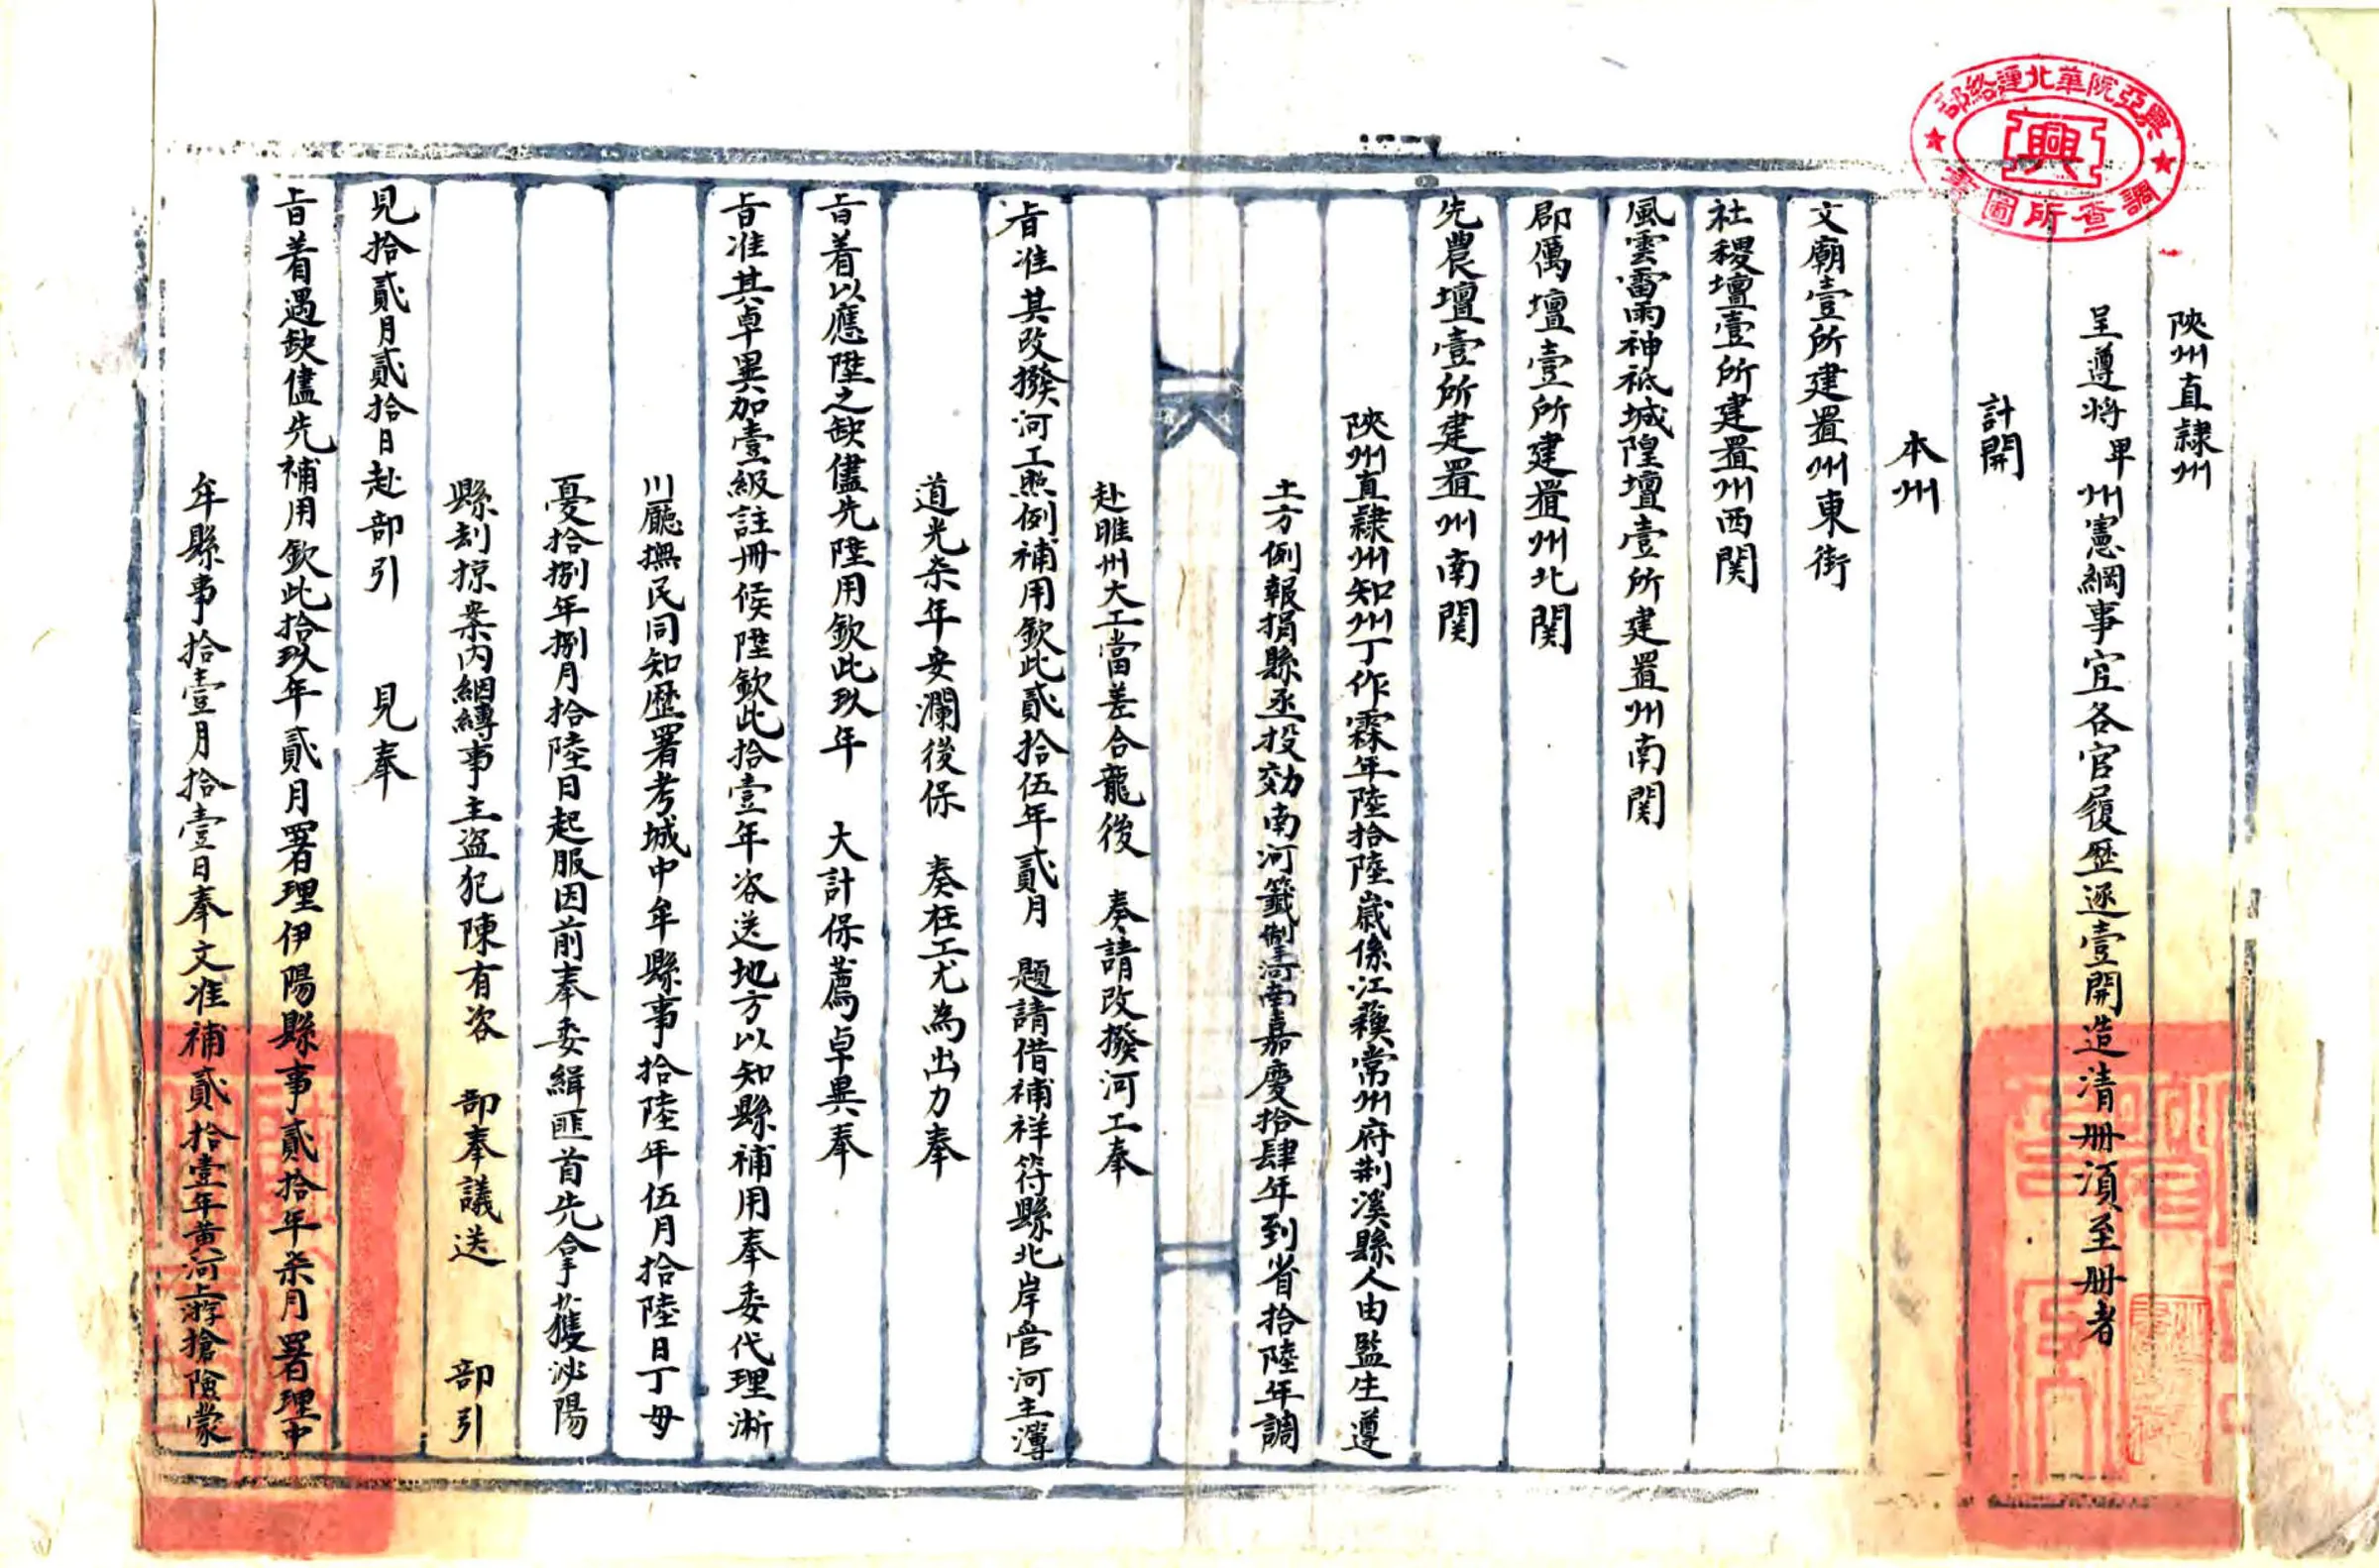 興亞院華北連絡部
興
調查所圖書
陝州直隸州
呈遵將卑州憲綱事宜各官履歷逐壹開造清冊湏至冊者
計開
本州
文廟壹所建置州東街
社稷壇壹所建置州西関
風雲雷雨神祇城隍壇壹所建置州南関
郡厲壇壹所建置州北関
先農壇壹所建置州南関
陝州直隸州知州丁作霖年陸拾陸歲係江蘓常州府荆溪縣人由監生遵
土方例報捐縣丞投効南河籤掣河南嘉慶拾肆年到省拾陸年調
赴睢州大工當差合龍後 奏請改撥河工奉
旨准其改撥河工照例補用欽此貳拾伍年貳月 題請借補祥符縣北岸管河主簿
道光柒年安瀾後保 奏在工尤為出力奉
旨着以應陞之缺儘先陞用欽此玖年 大計保薦卓異奉
旨准其卓異加壹級註冊候陞欽此拾壹年咨送地方以知縣補用奉委代理淅
川廳撫民同知歷署考城中牟縣事拾陸年伍月拾陸日丁母
憂拾捌年捌月拾陸日起服因前奉委緝匪首先拿獲泌陽
縣刦掠案內綑縛事主盜犯陳有咨 部奉議送 部引
見拾貳月貳拾日赴部引 見奉
旨着遇缺儘先補用欽此拾玖年貳月署理伊陽縣事貳拾年柒月署理中
牟縣事拾壹月拾壹日奉文准補貳拾壹年黃河上游搶險蒙